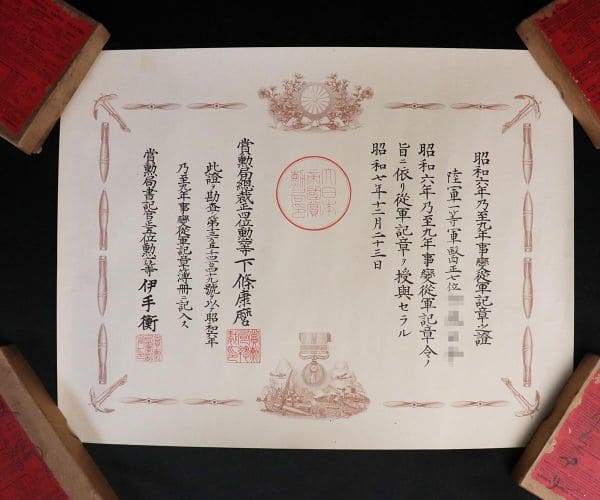 昭和六年乃至九年事變從軍記章之證
陸軍一等軍醫正七位
昭和六年乃至九年事變從軍記章令ノ
旨ニ依リ從軍記章ヲ授與セラル
昭和 年十二月二十三日
大日本
帝國賞
勳局印
賞勳局總裁正四位勳二等下條康麿
此證ヲ勘査シ第 號ヲ以テ昭和六年
乃至九年事變從軍記章簿冊ニ記入ス
賞勳局書記官正五位勳 等伊手衡